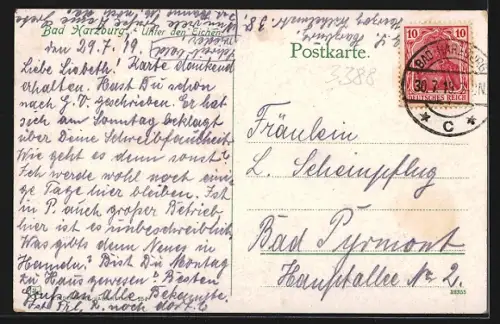 Bad Harzburg, Unter den Eichen.
den 29.7.19.
Liebe Lisbeth! Karte dankend
erhalten. Hast Du schon
nach G. V. geschrieben. Er hat
sich am Sonntag beklagt
über Deine Schreibfaulheit.
Wie geht es denn sonst?
Ich werde wohl noch eini-
ge Tage hier bleiben. Ist
in P. auch großer Betrieb,
hier ist es unbeschreiblich.
Was gibts denn Neues in
Hameln? Bist Du Montag
zu Haus gewesen? Besten
Gruß an alle Bekannte.
Ist Frl. noch dort?
Postkarte.
3388
10 10
DEUTSCHES REICH
BAD HARZBURG
30.7.19
* C *
Fräulein
L. Scheinpflug
Bad Pyrmont
Hauptallee No 2.